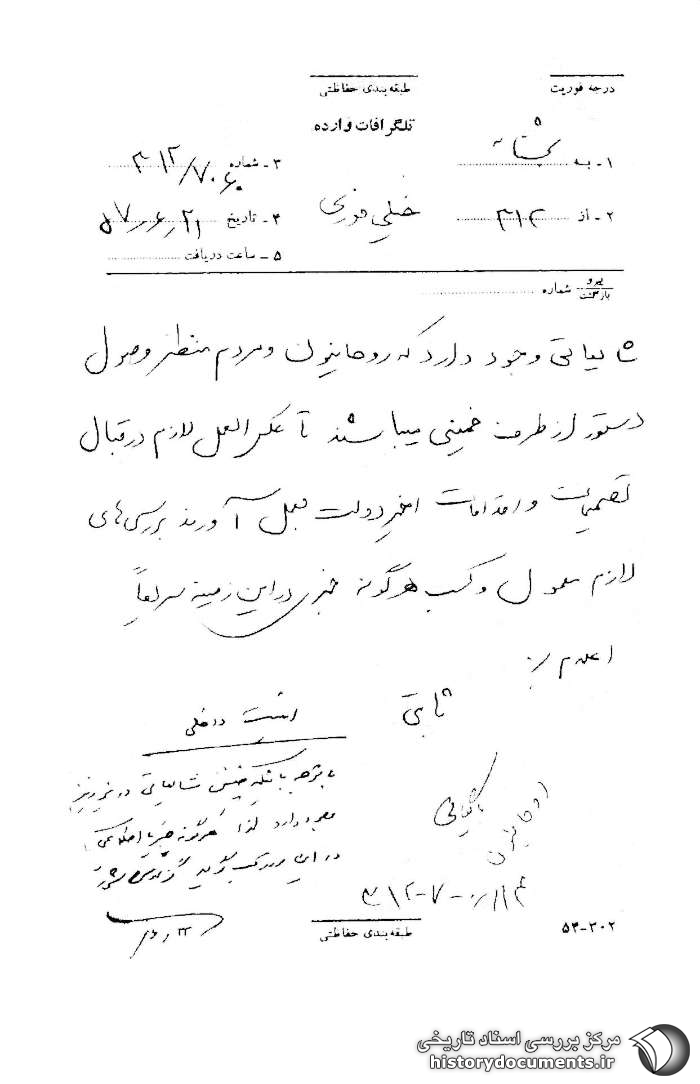 درجه فوریت
طبقه‌بندی حفاظتی
تلگرافات وارده
۱ - به
۳ - شماره ۳۱۲/۷۰۶۰
۲ - از ۳۱۲
خیلی فوری
۴ - تاریخ ۲۱ر۶ر۵۷
۵ - ساعت دریافت
پیرو
بازگشت
شماره
شایعاتی وجود دارد که روحانیون و مردم منتظر وصول
دستور از طرف خمینی میباشند تا عکس العمل لازم در قبال
تصمیمات و اقدامات اخیر دولت بعمل آورند بررسی‌های
لازم معمول و کسب هرگونه خبری در این زمینه سریعاً
اعلام
ثابتی
امنیت داخلی
با توجه باینکه چنین شایعاتی در نیز
وجود دارد لذا هرگونه خبر یا اطلاعی
در این مورد کسب گردید گزارش شود
بایگانی
روحانیون
۲۲ر۶
طبقه‌بندی حفاظتی
۵۳-۳۰۲
مرکز بررسی اسناد تاریخی
historydocuments.ir